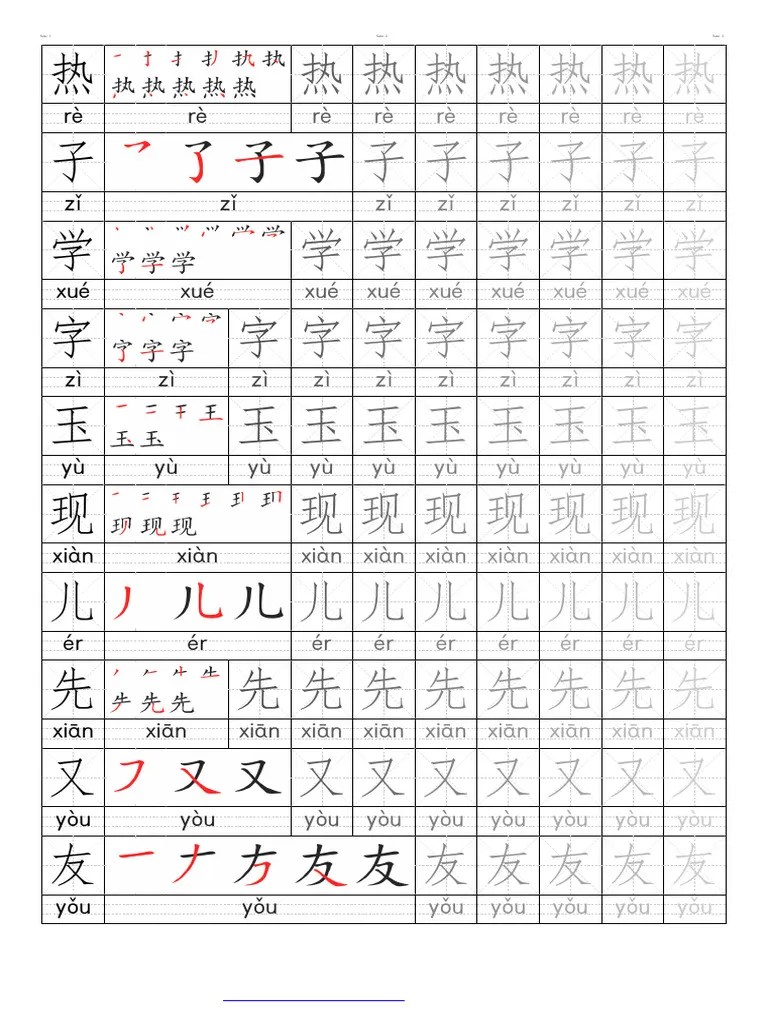 热 热 热 热 热 热 热 热 热
rè rè rè rè rè rè rè rè rè
子 了 子 子 子 子 子 子 子 子
zǐ zǐ zǐ zǐ zǐ zǐ zǐ zǐ
学 学 学 学 学 学 学 学 学
xué xué xué xué xué xué xué xué xué
字 字 字 字 字 字 字 字 字 字
zì zì zì zì zì zì zì zì zì zì
玉 玉 玉 玉 玉 玉 玉 玉 玉 玉
yù yù yù yù yù yù yù yù yù yù
现 现 现 现 现 现 现 现 现
xiàn xiàn xiàn xiàn xiàn xiàn xiàn xiàn xiàn
儿 丿 儿 儿 儿 儿 儿 儿 儿 儿 儿
ér ér ér ér ér ér ér ér ér
先 先 先 先 先 先 先 先 先 先
xiān xiān xiān xiān xiān xiān xiān xiān xiān xiān
又 又 又 又 又 又 又 又 又 又
yòu yòu yòu yòu yòu yòu yòu yòu yòu
友 一 友 友 友 友 友 友 友 友
yǒu yǒu yǒu yǒu yǒu yǒu yǒu